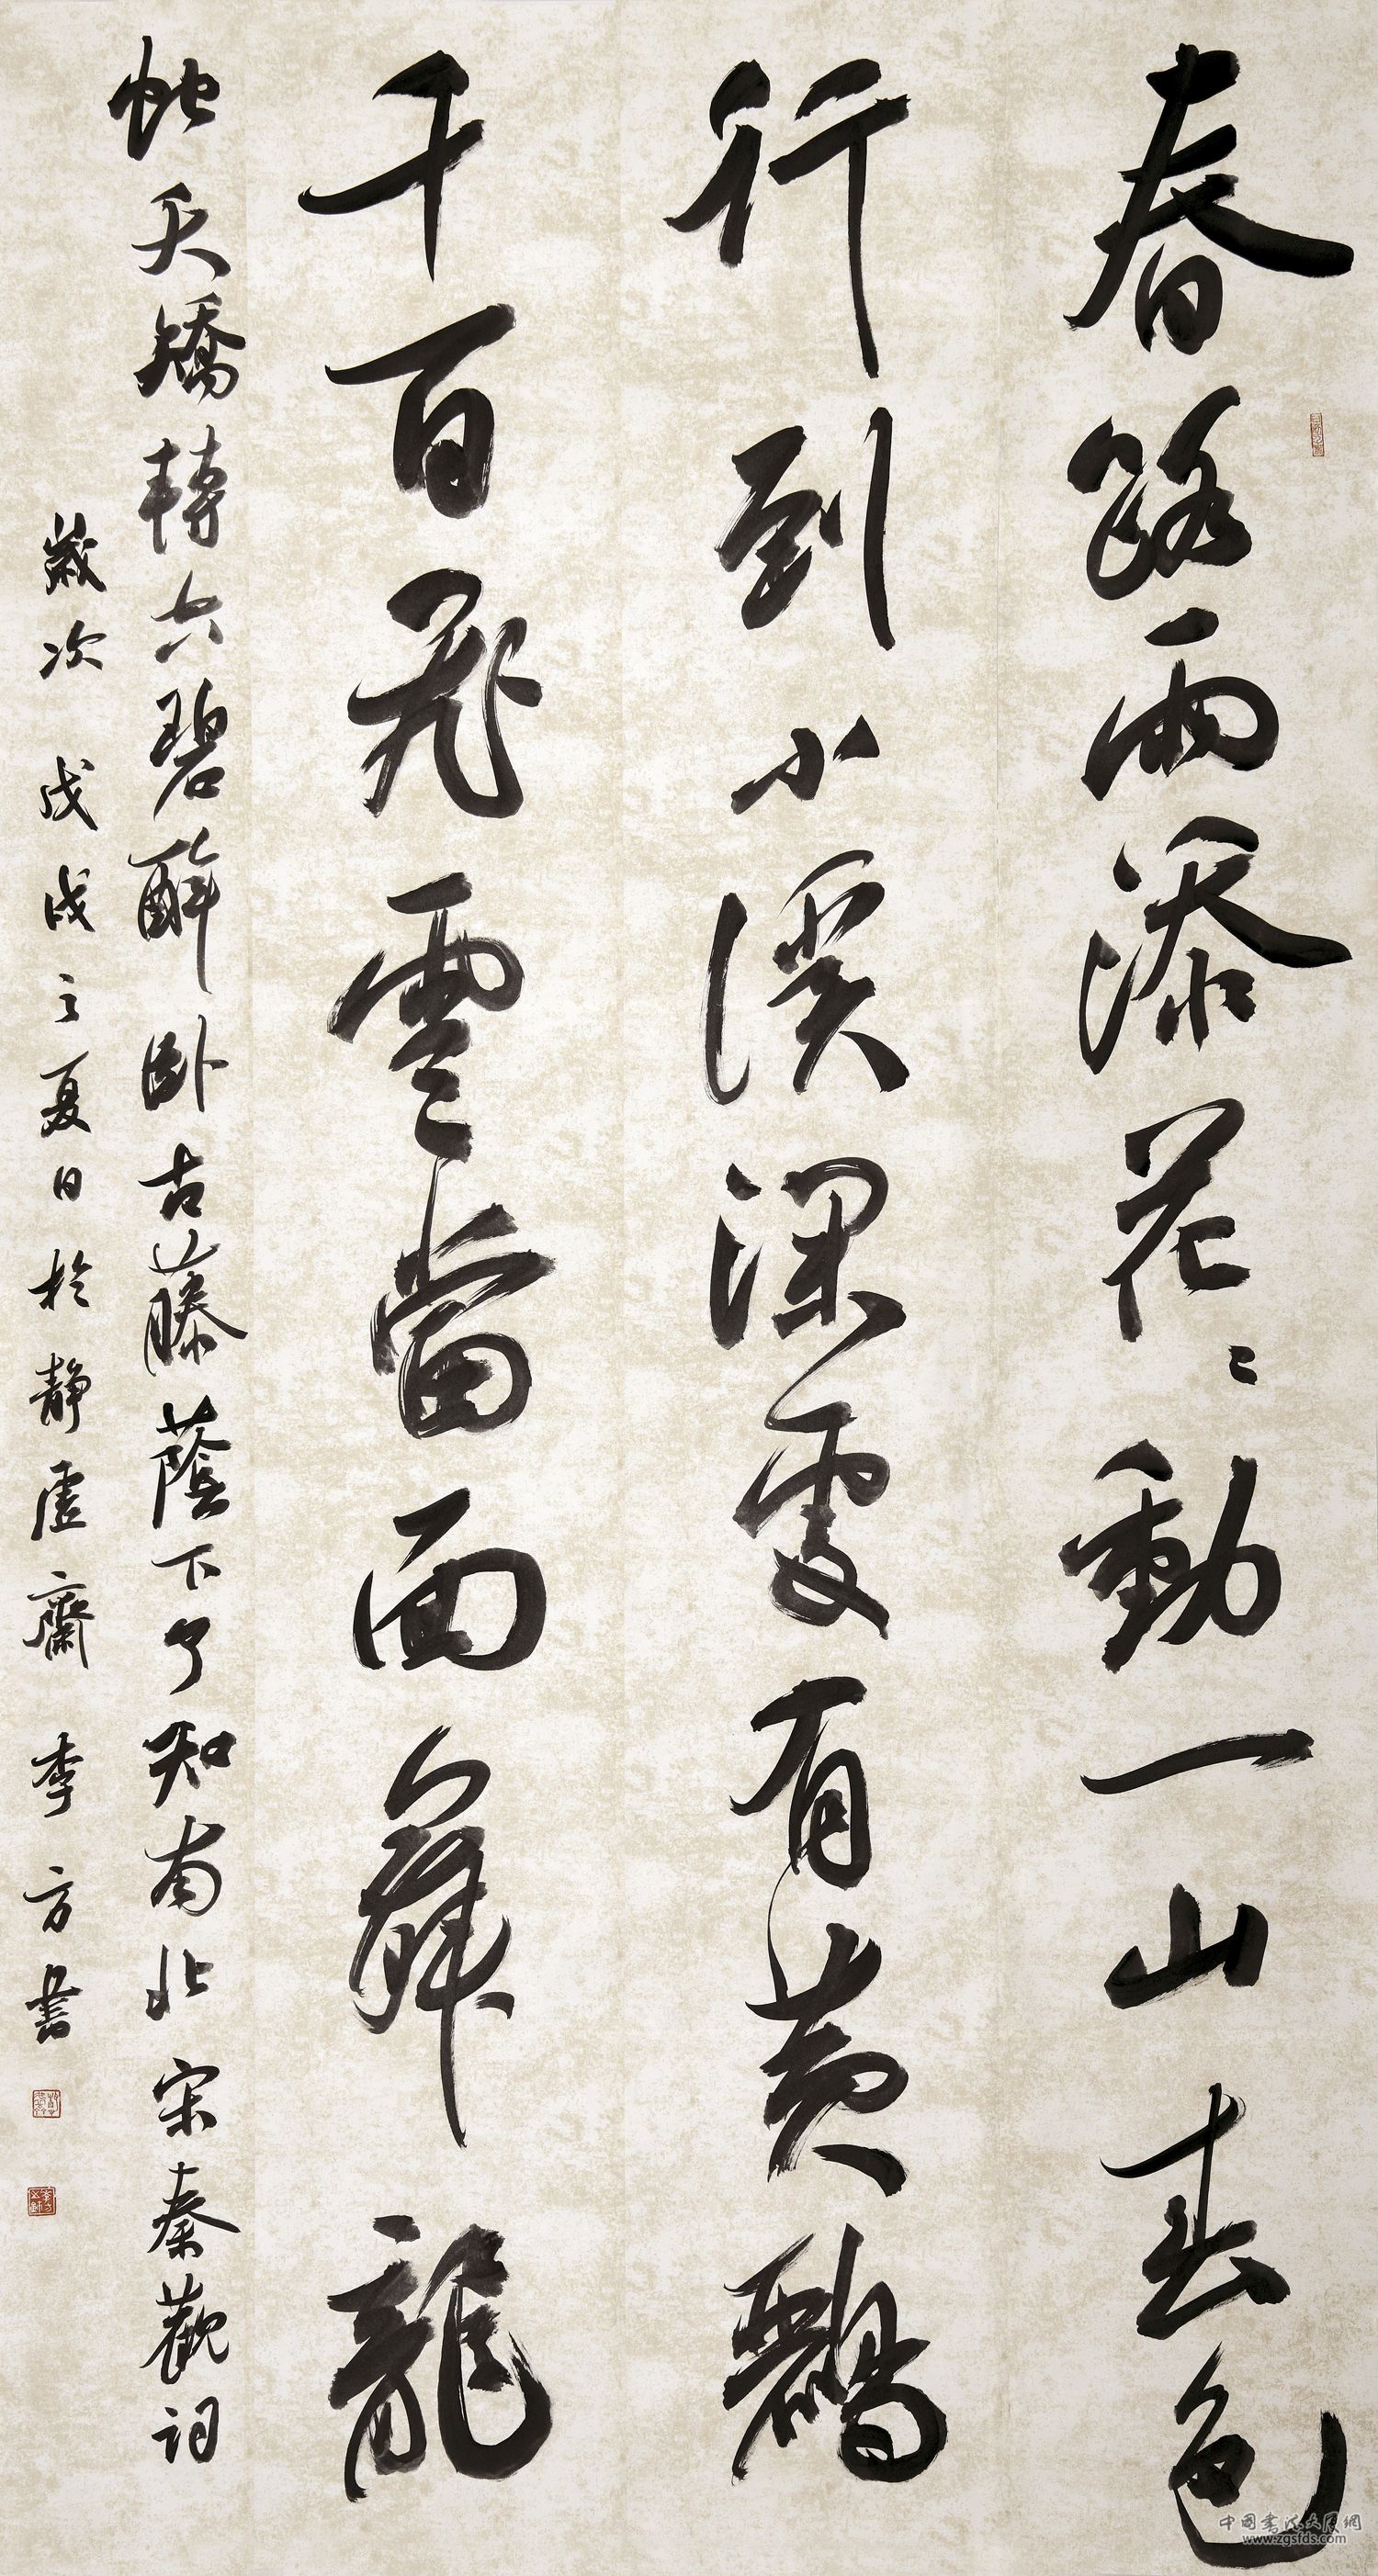 春路雨添花〻動一山春色
行到小溪深處有黄鸝
千百飛雲當面舞龍
虵夭矯轉空碧醉卧古藤蔭下了知南北宋秦觀詞
歲次戊戌之夏日於静虛齋李方書
中國書法大展網
www.zgsfds.com